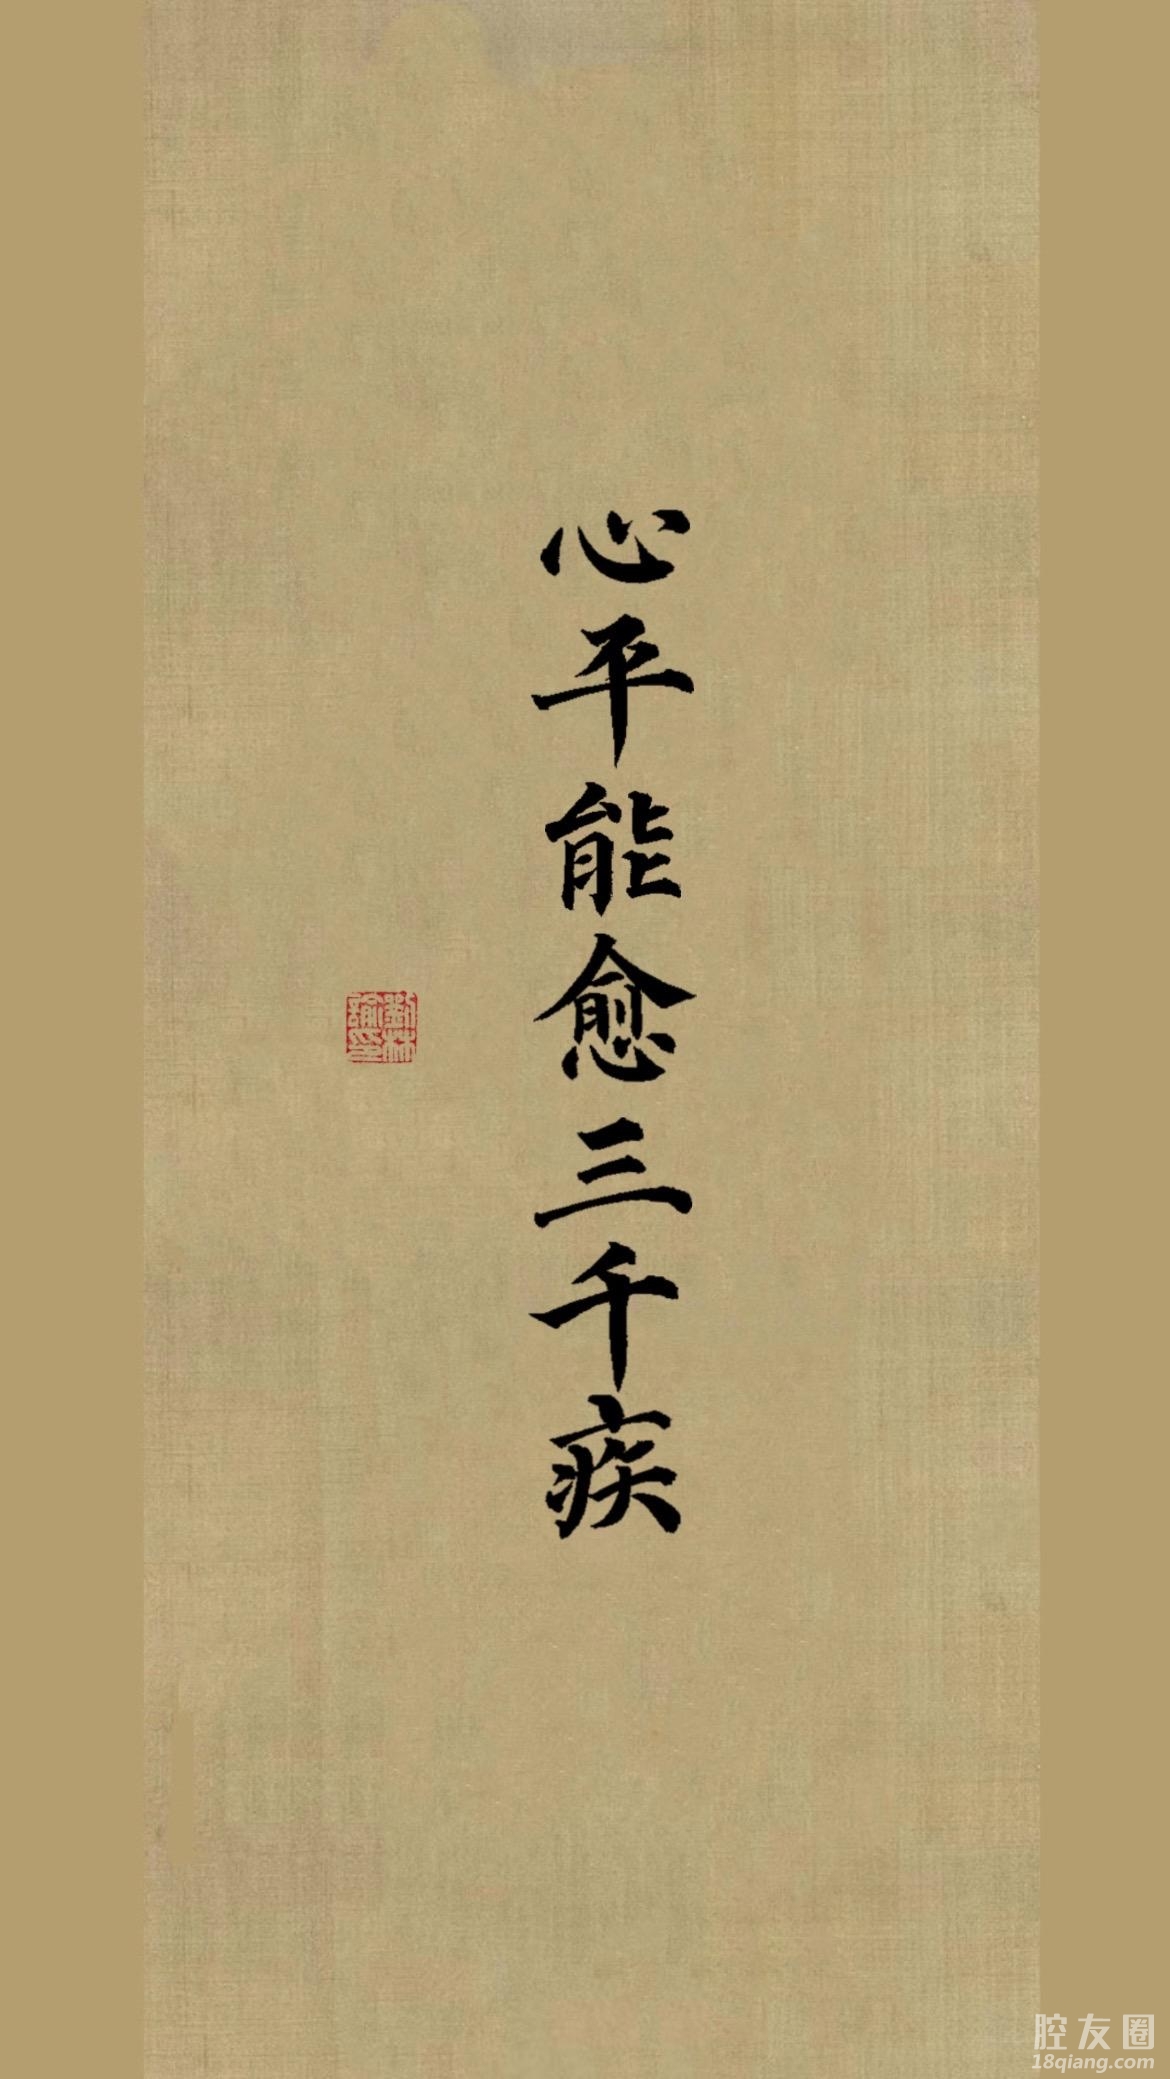 心平能愈三千疾
劉林
諭印
腔友圈
18qiang.com